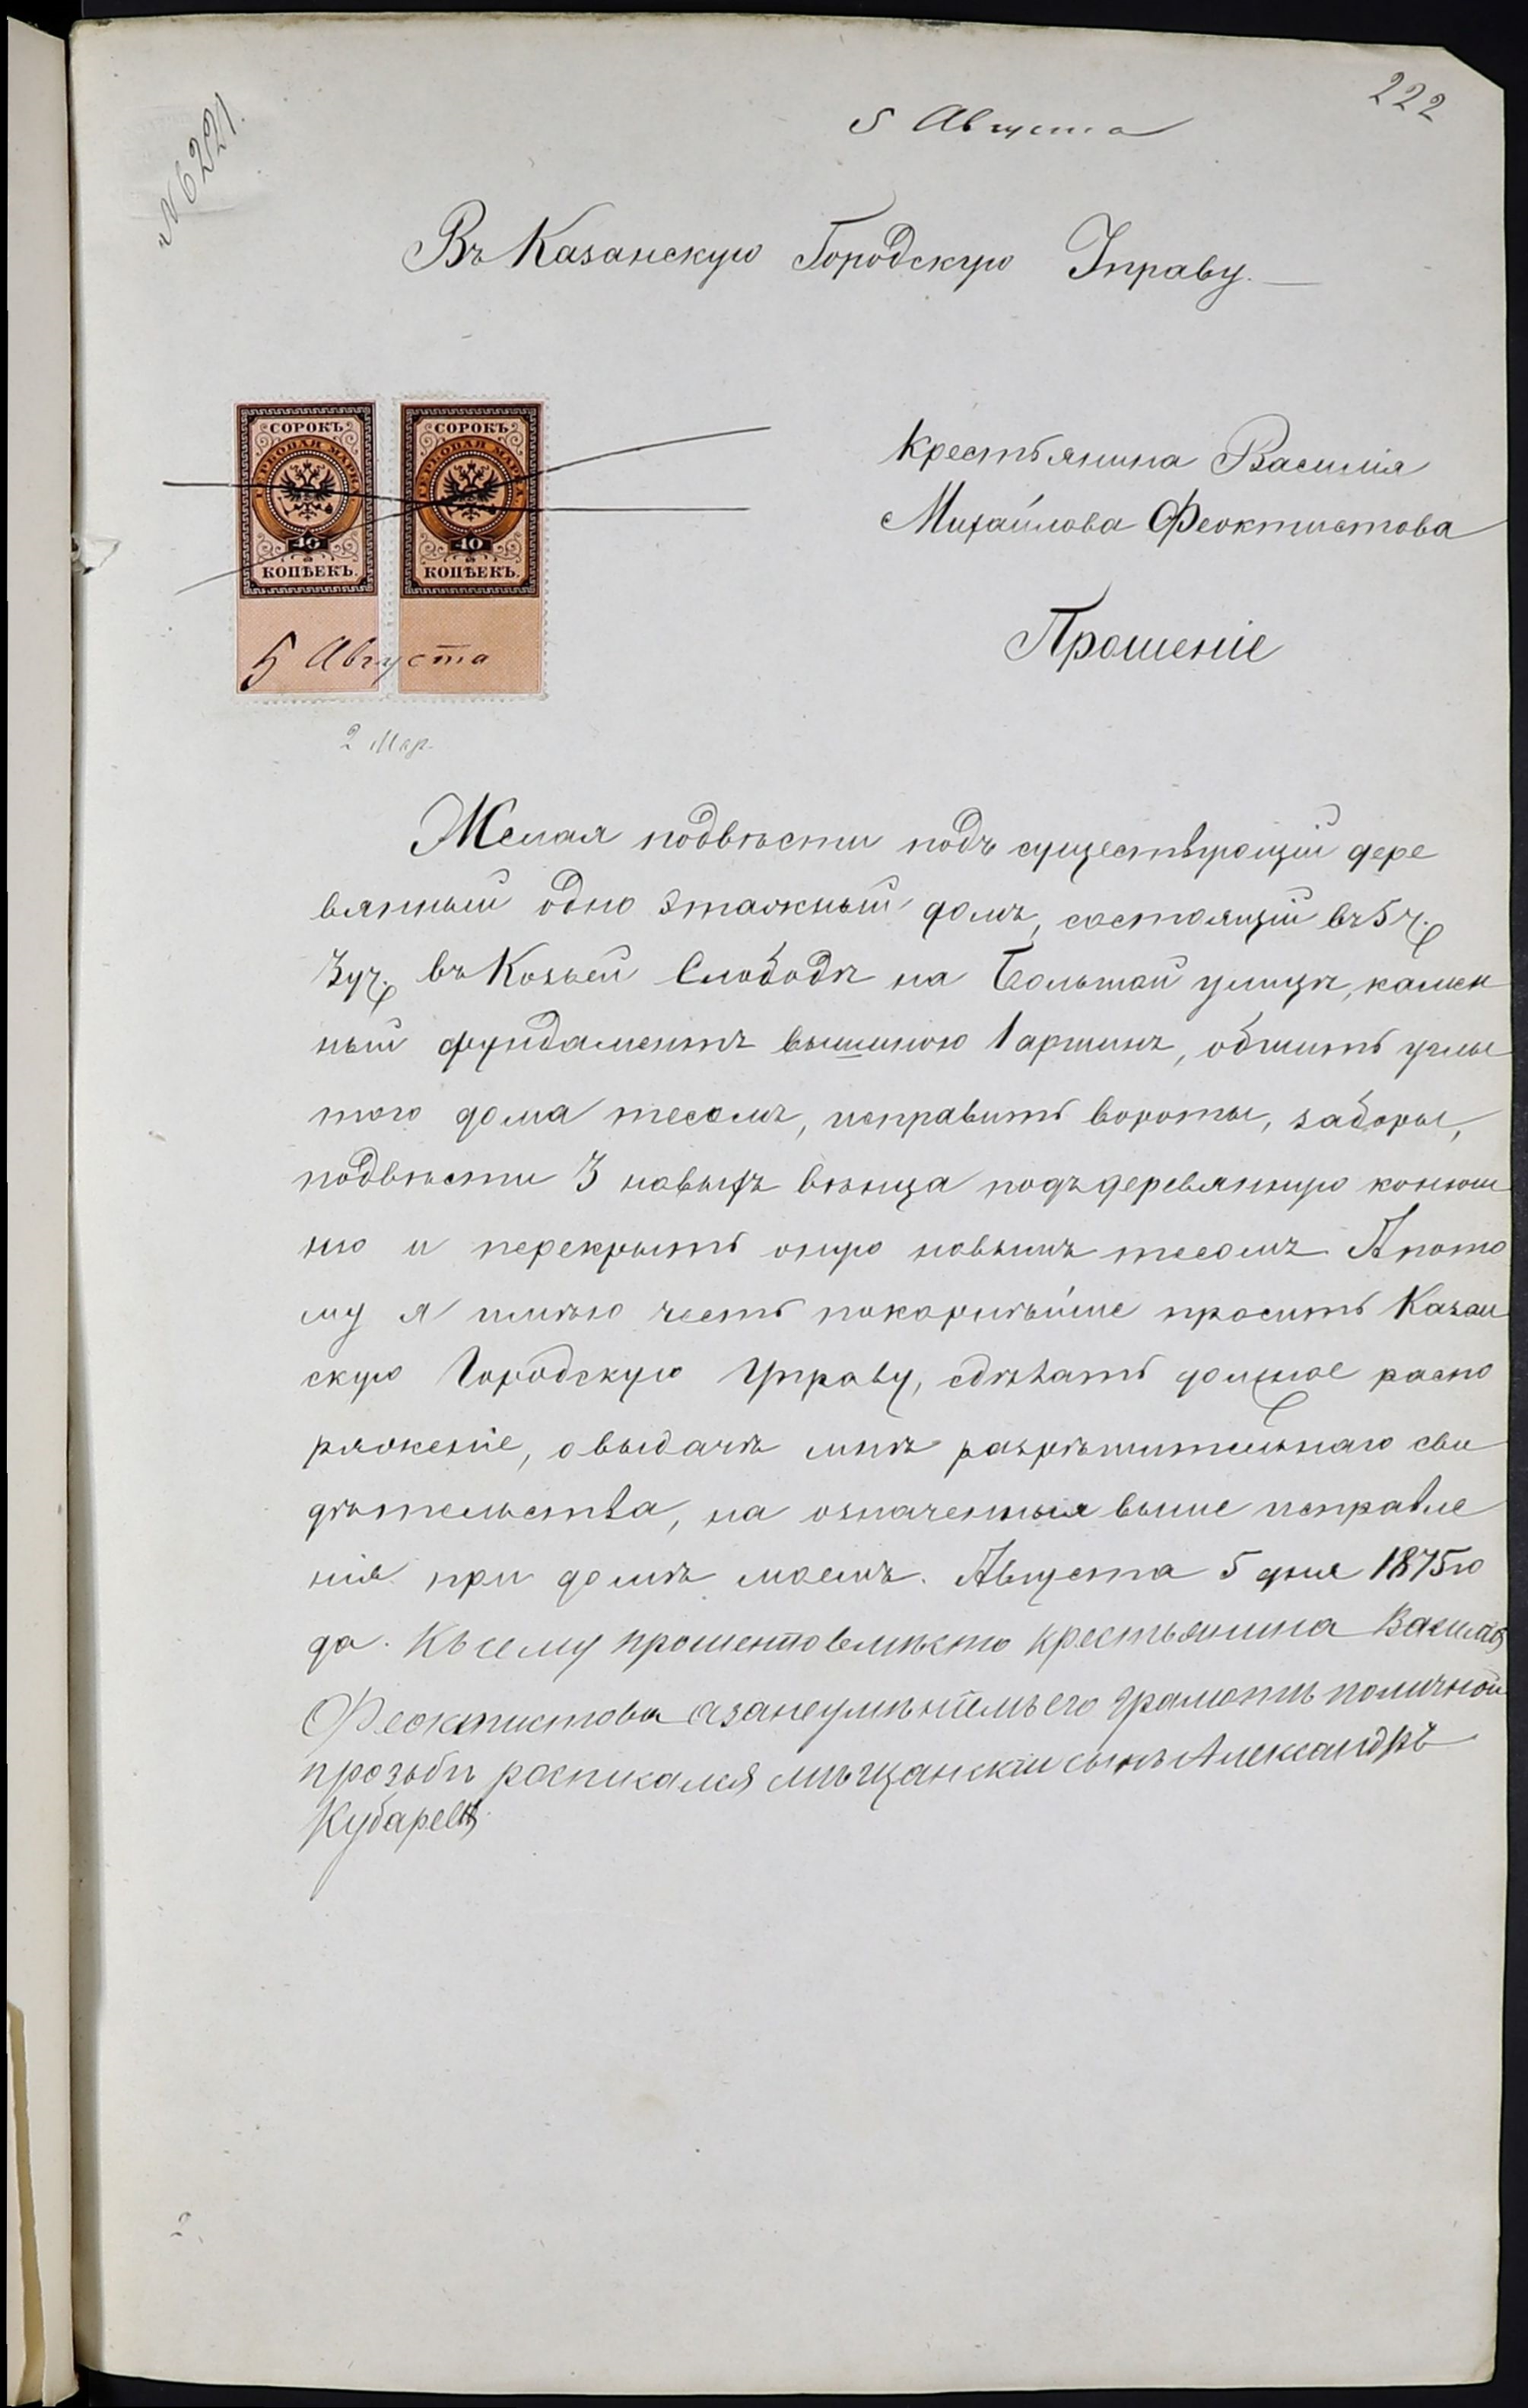 222
5 Августа
№ 6221.
Въ Казанскую Городскую Управу.
СОРОКЪ СОРОКЪ
ГЕРБОВАЯ МАРКА ГЕРБОВАЯ МАРКА
40 40
КОПѢЕКЪ. КОПѢЕКЪ.
5 Августа
2 Мар.
Крестьянина Василія
Михайлова Феоктистова
Прошеніе
Желая подвѣсти подъ существующій дере
вянный одно этажный домъ, состоящій въ 5 ч.
3 уч. въ Козьей Слободѣ на Большой улицѣ, камен
ный фундаментъ вышиною 1 аршинъ, обшить углы
того дома тесомъ, исправить вороты, заборы,
подвѣсти 3 новыхъ вѣнца подъ деревянную конюш
ню и перекрыть оную новымъ тесомъ. А пото
му я имѣю честь покорнѣйше просить Казан
скую Городскую Управу, сдѣлать должное распо
ряженіе, о выдачѣ мнѣ разрѣшительнаго сви
дѣтельства, на означенныя выше исправле
нія при домѣ моемъ. Августа 5 дня 1875 го
да. Къ сему прошенію вмѣсто крестьянина Василья
Феоктистова а за неумѣніемъ его грамотѣ по личной
прозьбѣ росписался мѣщанскій сынъ Александръ
Кубаревъ